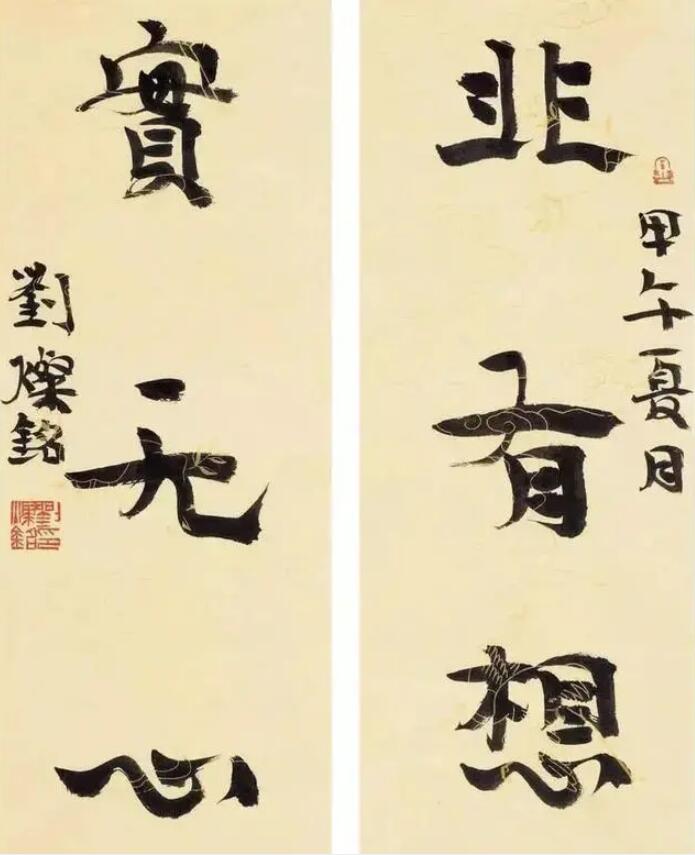 非有想
甲午夏月
實无心
劉燦銘